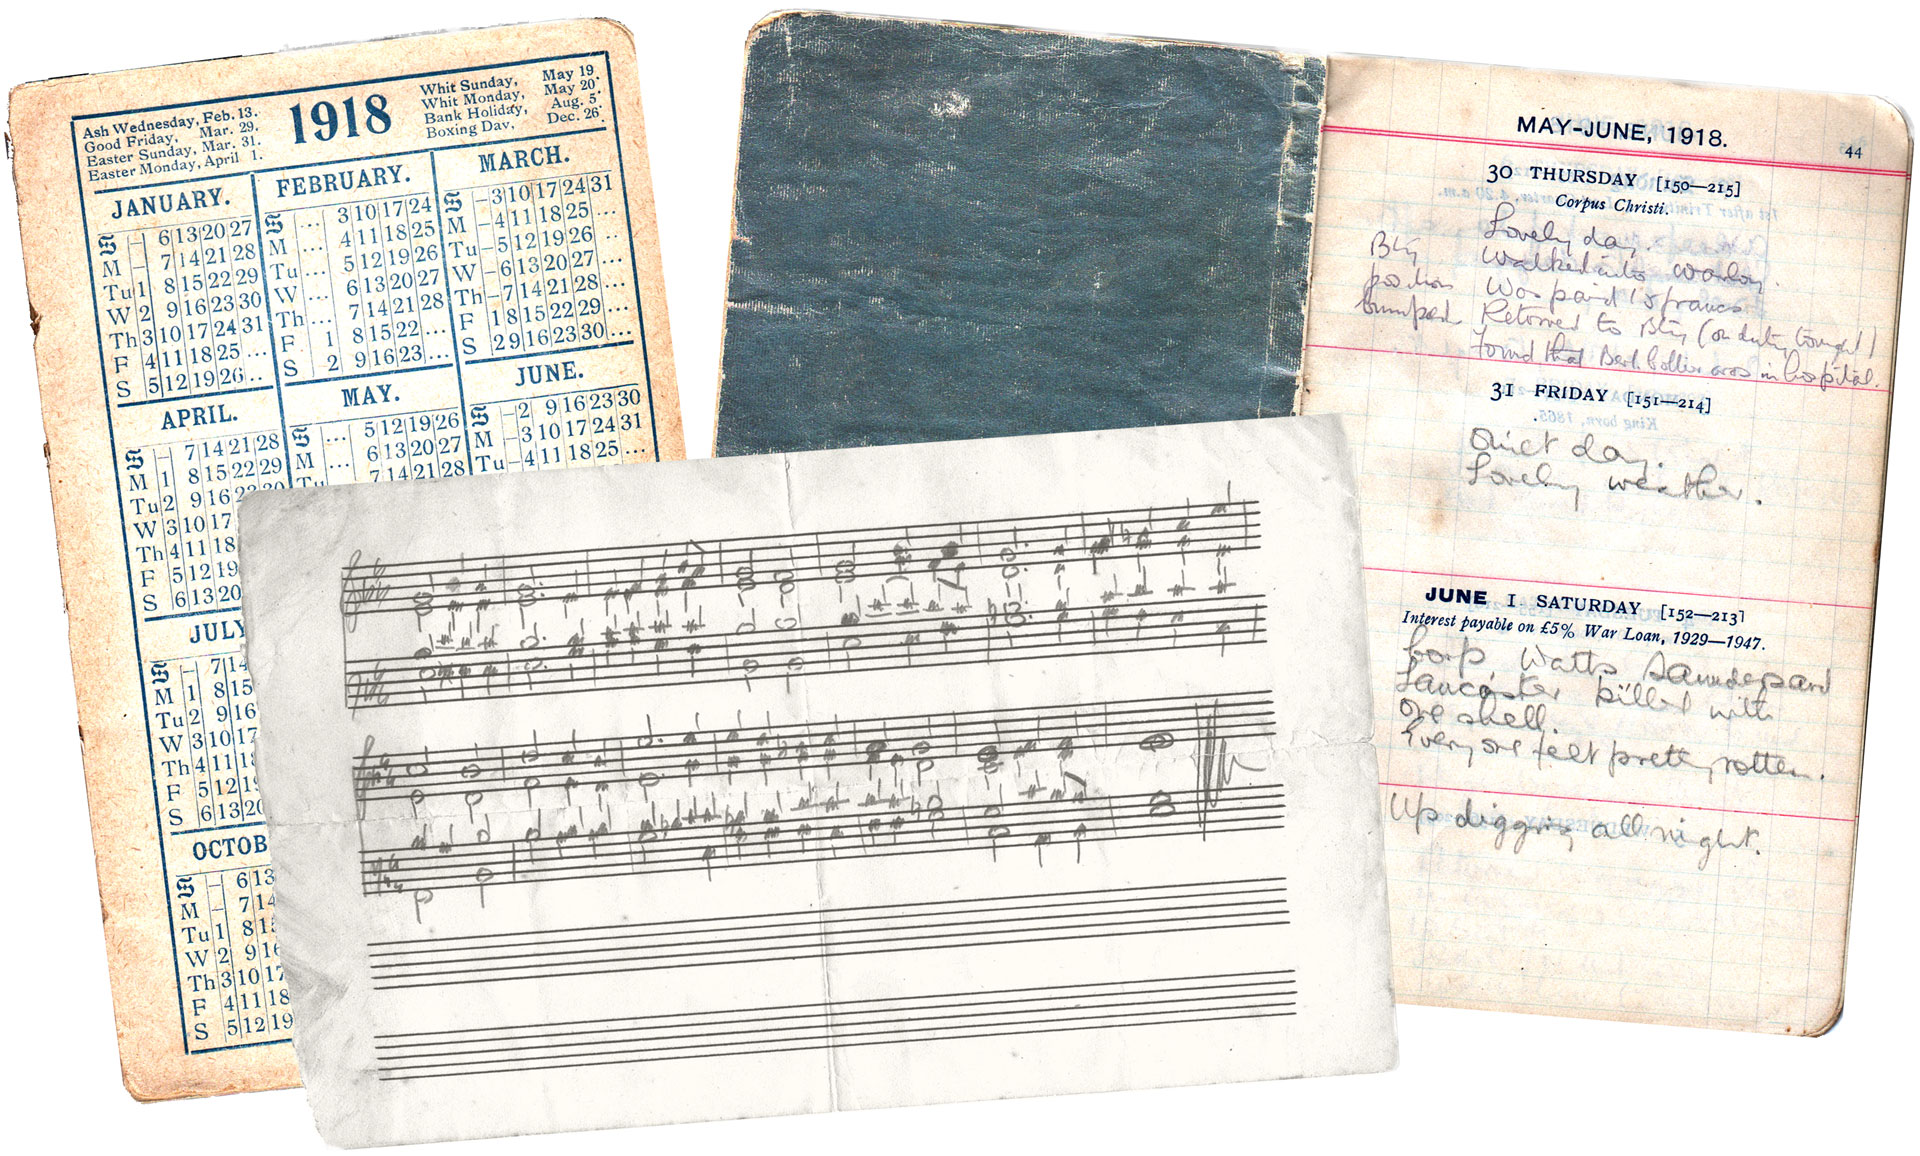 Ash Wednesday, Feb. 13.
Good Friday, Mar. 29.
Easter Sunday, Mar. 31.
Easter Monday, April 1.
1918
Whit Sunday, May 19.
Whit Monday, May 20.
Bank Holiday, Aug. 5.
Boxing Day, Dec. 26.
JANUARY.
S – 6 13 20 27
M – 7 14 21 28
Tu 1 8 15 22 29
W 2 9 16 23 30
Th 3 10 17 24 31
F 4 11 18 25 ...
S 5 12 19 26 ..
FEBRUARY.
S ... 3 10 17 24
M ... 4 11 18 25
Tu ... 5 12 19 26
W ... 6 13 20 27
Th ... 7 14 21 28
F 1 8 15 22 ...
S 2 9 16 23 ...
MARCH.
S – 3 10 17 24 31
M – 4 11 18 25 ...
Tu – 5 12 19 26 ..
W – 6 13 20 27 ...
Th – 7 14 21 28 ...
F 1 8 15 22 29 ...
S 2 9 16 23 30 ...
APRIL.
S – 7 14 21 28
M 1 8 15 22 29
Tu 2 9 16 23 30
W 3 10 17
Th 4 11 18
F 5 12 19
S 6 13 20
MAY.
S ... 5 12 19 26
M ... 6 13 20 27
Tu 7 14 21 28
JUNE.
S – 2 9 16 23 30
M – 3 10 17 24 31
Tu – 4 11 18 25 ...
JULY
S – 7 14
M 1 8 15
Tu 2 9 16
W 3 10 17
Th 4 11
F 5 12 19
S 6 13 20
OCTOB
S – 6 13
M – 7 14
Tu 1 8 15
W 2 9 16
Th 3 10 17
F 4 11 18
S 5 12 19
MAY-JUNE, 1918.
44
30 THURSDAY [150—215]
Corpus Christi.
Lovely day.
Walked into Warloy.
Was paid 15 francs.
Returned to Bty (on duty tonight)
Found that Bert was in hospital.
Bty
position
bumped
31 FRIDAY [151—214]
Quiet day.
Lovely weather.
JUNE 1 SATURDAY [152—213]
Interest payable on £5% War Loan, 1929—1947.
Corp. Watts Saunders and
Lancaster killed with
one shell.
Everyone felt pretty rotten.
Up digging all night.